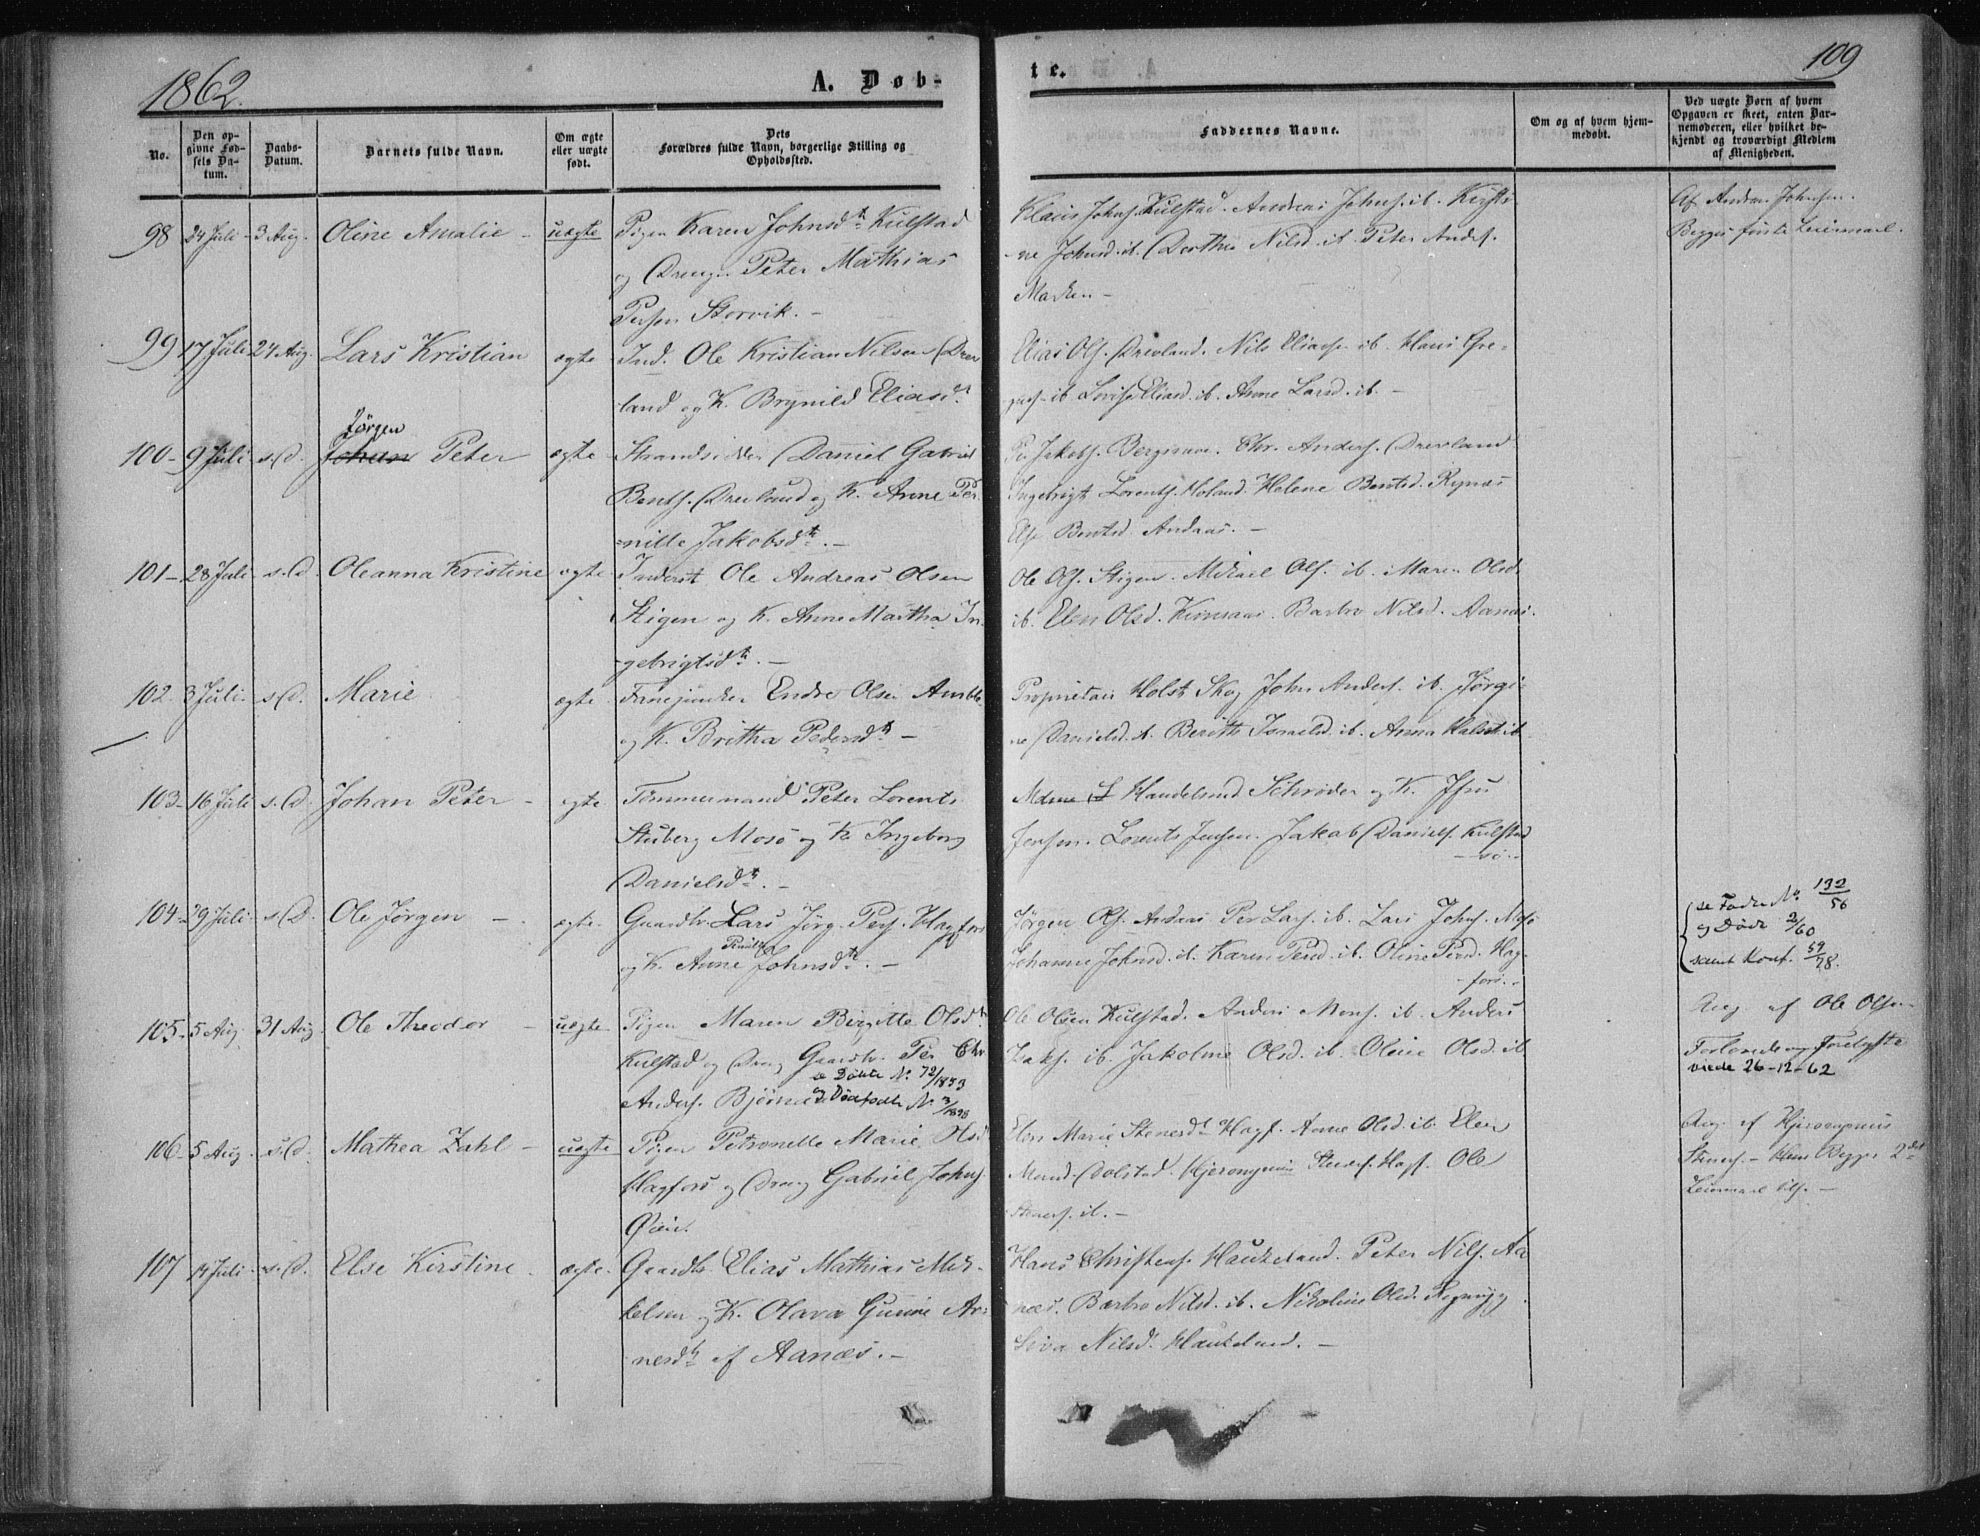 1862.
A. Døb-
te.
109
No.
Den op-
givne Fød-
sels Da-
tum.
Daabs-
Datum.
Barnets fulde Navn.
Om ægte
eller uægte
født.
Dets
Forældres fulde Navn, borgerlige Stilling og
Opholdssted.
Faddernes Navne.
Om og af hvem hjem-
medøbt.
Ved uægte Børn af hvem
Opgaven er skeet, enten Bar-
nemoderen, eller hvilket be-
kjendt og troværdigt Medlem
af Menigheden.
98 24 Juli - 3 Aug. Oline Amalie - uægte Pigen Karen Johnsdt. Kulstad
og Dreng Peter Mathias
Persen Storvik. -
Klaus Johns. Kulstad. Andreas Johns. ib. Kirsti-
ne Johnsd. ib. Dorthea Nilsd. ib. Peter Anders.
Marken -
Af Andreas Johnsen.
Begges første Leiermaal.
99 17 Juli 24 Aug. Lars Kristian ægte Ind. Ole Kristian Nilsen Drev
land og K. Brynild Eliasdt.
Elias Ols. Drevland. Nils Elias. ib. Hans Gre-
gers. ib Lovise Eliasd. ib. Anne Larsd. ib. -
Jørgen
100 - 9 Juli - s. D. Johan Peter ægte - Strandsidder Daniel Gabriel
Bents. Drevland og K. Anne Per-
nille Jakobsdt. -
Jakobs. Bergsnev. Chr. Anders. Drevland
Ingebrigt Lorents. Holand. Helene Bentsd. Rynes
Else Bentsd. Andaas. -
101 - 28 Juli s. D. Oleanna Kristine ægte Inderst Ole Andreas Olsen
Stigen og K. Anne Martha In-
gebrigtsdt. -
Ole Ols. Stigen. Mikael Ols. ib. Maren Olsd.
ib. Elen Olsd. Barbro Nilsd. Aanæs.
102 3 Juli. s. D. Marie ægte. Fanejunker Endre Olsen
og K. Britha Pedersdt. -
Proprietair Holst Skog John Anders. ib. Jørgi-
ne Danielsd. ib. Berith Ismelsd. ib. Anna ib
103 - 16 Juli s. D. Johan Peter - ægte Tømmermand Peter Lorents
Stuberg Mosø og K. Ingeborg
Danielsdt. -
Handelsmd. Schrøder og K. Jfru
Jensen. Lorents Jensen. Jakob Daniels. Kulstad
104 - 29 Juli - s. D. Ole Jørgen - ægte. Gaardbr. Lars Jørg. Pers. Hagfors
Pernille
og K. Anne Johnsdt. -
Jørgen Ols. Andaas Per Lars. ib. Lars Johns. Mosø
Johanne Johnsd. ib. Karen Persd. ib. Oline Persd. Hag-
fors. -
se Fødte No. 132/56
og Døde 2/60
samt Konf. 59/78.
105 - 5 Aug 31 Aug. Ole Theodor - uægte Pigen Maren Birgitte Olsdt.
Kulstad og Dreng Gaardbr. Per Chr
se Døbte No. 72/1833
Anders. Bjørnaa og Dødfødte No. 3/1898
Ole Olsen Kulstad. Anders Mons. ib. Anders
Isaks. ib. Jakoline Olsd. ib. Oline Olsd. ib
Ang. af Ole Olsen
Forlovede og Forelyste
viede 26-12-62
106 - 5 Aug. s. D. Mathea Zahl - uægte Pigen Petronelle Marie Olsd
Hagfors og Dreng Gabriel Johns.
Øien.
Elen Marie Stenersdt. Hagf. Anne Olsd. ib. Elen
Mand. Dolstad. Hjeronymus Steners. Hagf. Ole
Steners. ib. -
Ang. af Hjeronymus
Steners. - Begges 2det
Leiermaal -
107 14 Juli - s. D. Else Kirstine - ægte. Gaardbr. Elias Mathias Mik-
kelsen og K. Olava Gurine Ar-
nesdt. af Aanæs. -
Hans Christens. Haukeland. Peter Nils. Aa
næs. Barbro Nilsd. ib. Nikoline Olsd. Rynnyg
Siva Nilsd. Haukeland. -